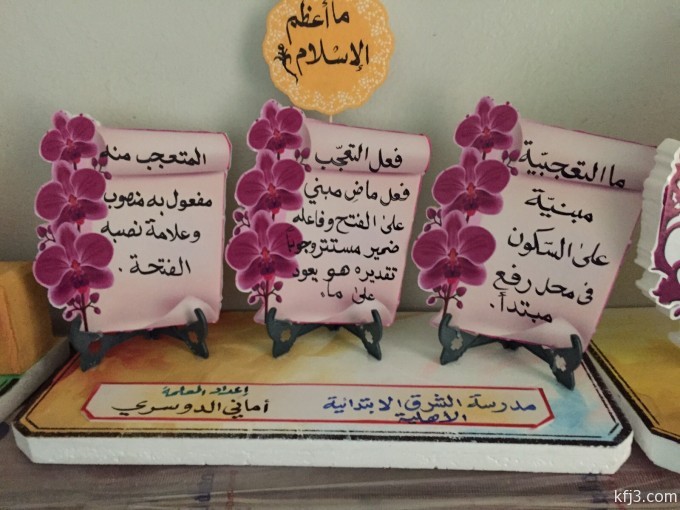 ما أعظم
الإسلام
ما التعجبيّة
مبنيّة
على السّكون
في محل رفع
مبتدأ.
فعل التعجّب
فعل ماضٍ مبني
على الفتح وفاعله
ضمير مستتر وجوباً
تقديره هو يعود
على ما.
المتعجب منه
مفعول به منصوب
وعلامة نصبه
الفتحة.
مدرسة الشرق الابتدائية
الاهلية
إعداد المعلمة
أماني الدوسري
kfj3.com